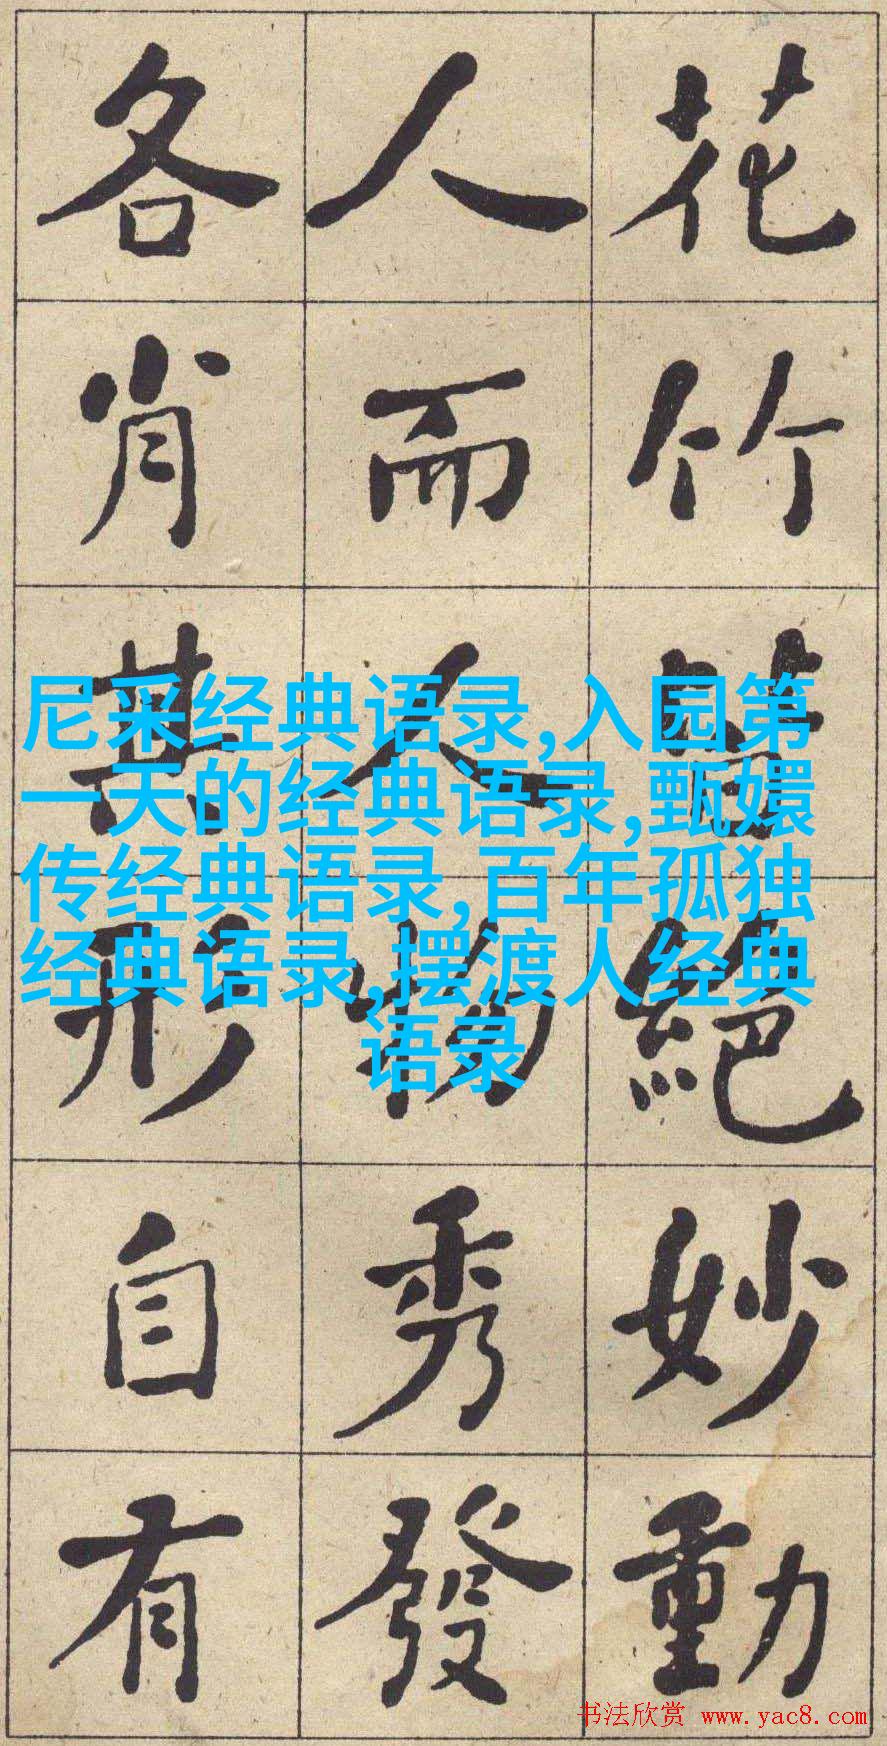 花竹皆絕妙動
人而人物秀發
各肖其形自有
尼采经典语录,入园第
一天的经典语录,甄嬛
传经典语录,百年孤独
经典语录,摆渡人经典
语录
书法欣赏 www.yac8.com